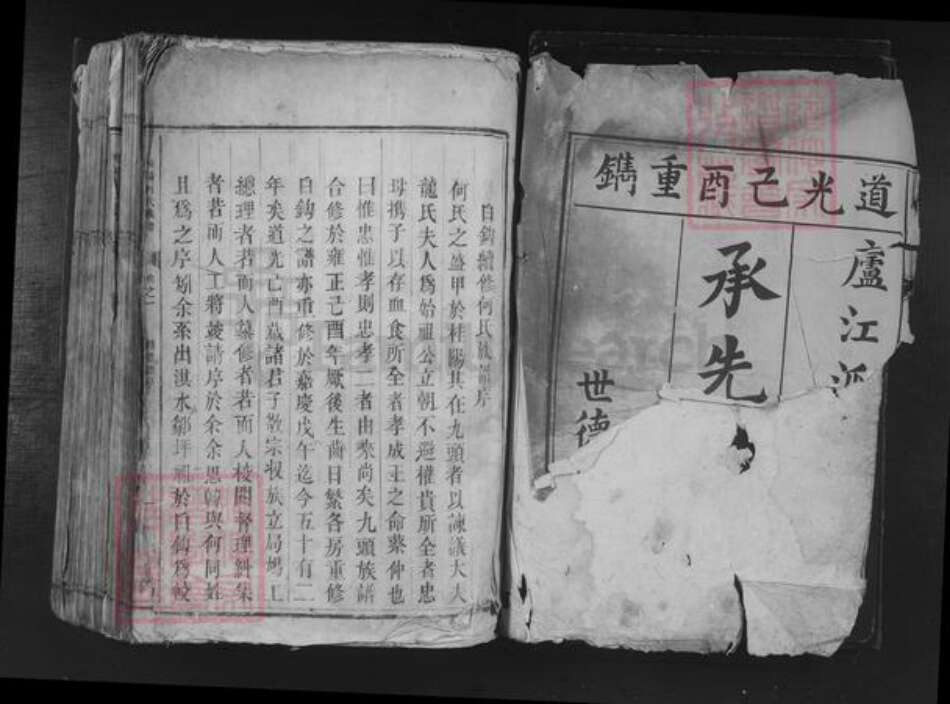 道光己酉重鐫
廬江派
承先
世德
白鈎續修何氏族譜序
何氏之盛甲於桂陽其在九頭者以諫議大夫
龍氏夫人爲始祖公立朝不避權貴所全者忠
母携子以存血食所全者孝成王之命蔡仲也
曰惟忠惟孝則忠孝二者由來尚矣九頭族譜
合修於雍正己酉年厥後生齒日繁各房重修
白鈎之譜亦重修於嘉慶戊午迄今五十有二
年矣道光己酉歲諸君子敬宗収族立局塲
總理者若而人纂修者若而人校閱督理糾集
者若而人工將竣請序於余余思韓與何同姓
且爲之序矧余系出淇水鄒坪祠於白鈎爲較